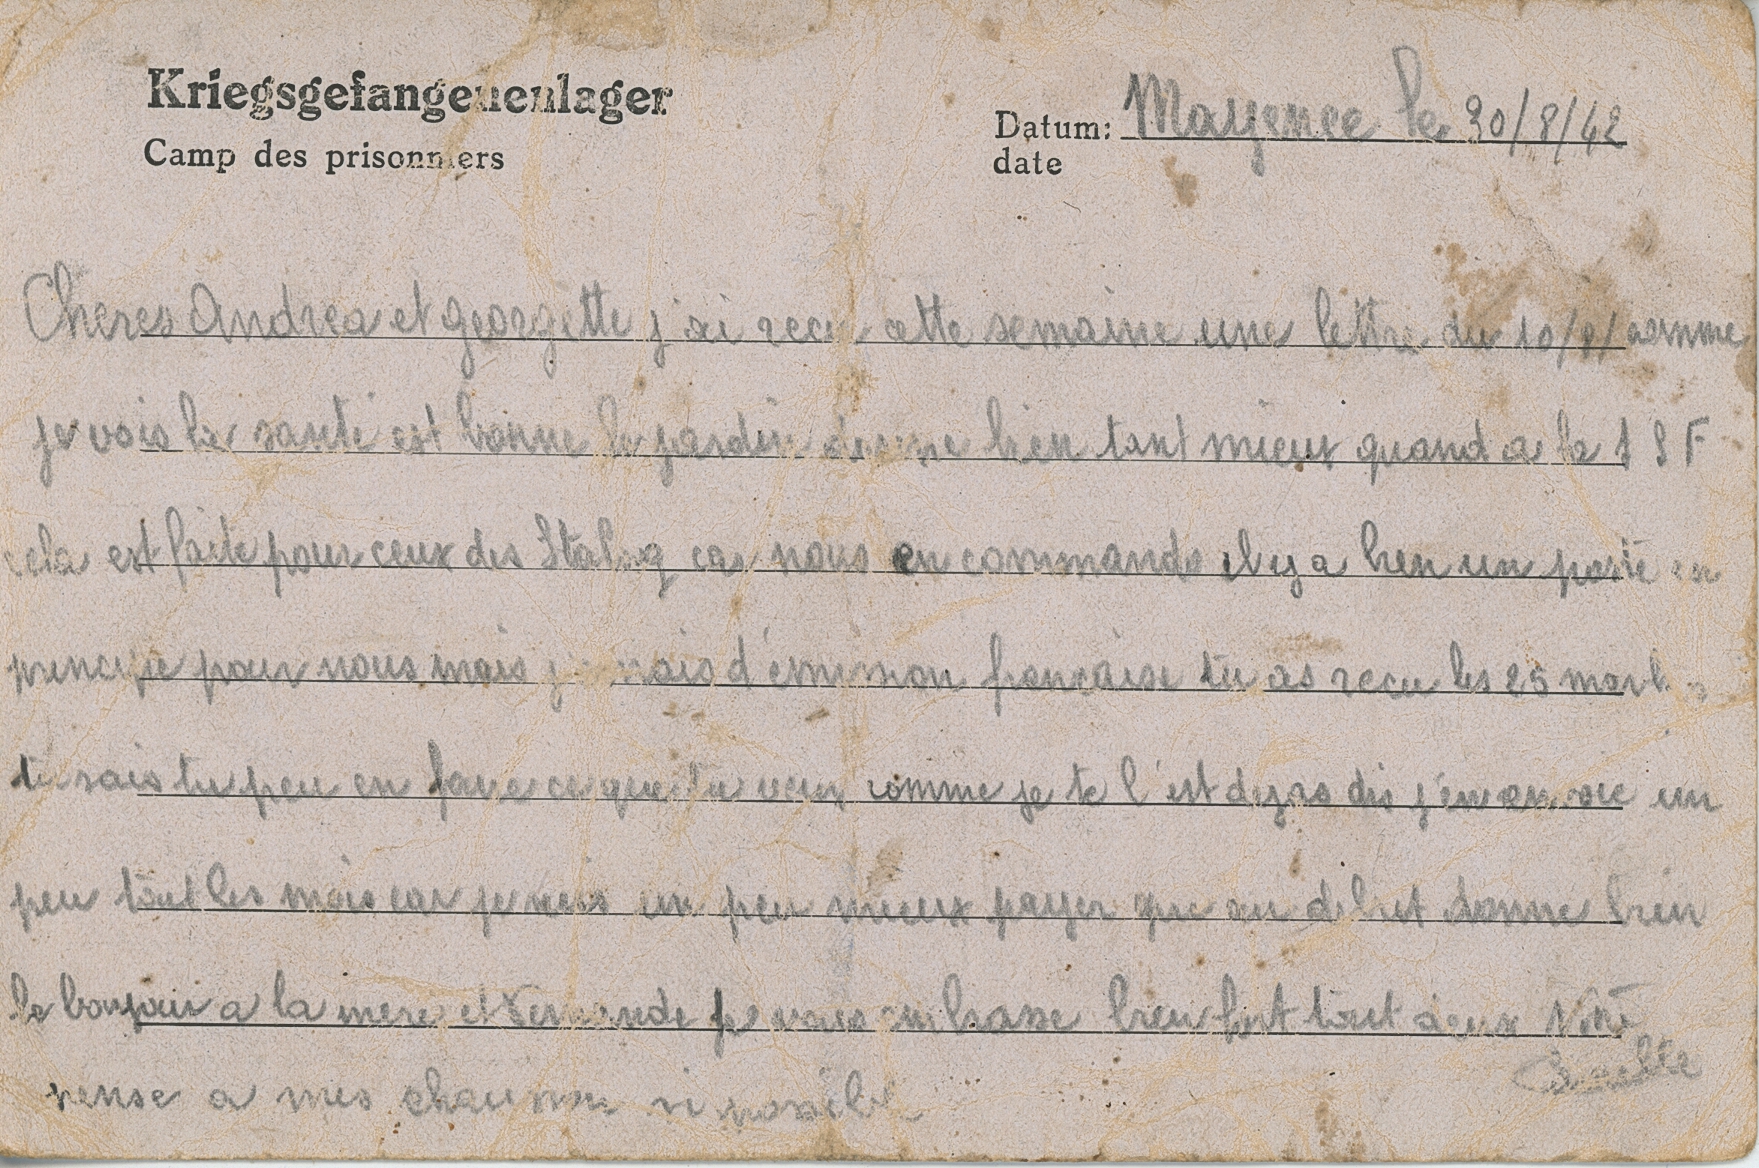 Kriegsgefangenenlager
Camp des prisonniers
Datum: Mayence le 30/8/42
date
Cheres Andrea et georgette j'ai recu cette semaine une lettre du 10/8/ comme
je vois la santé est bonne le jardin donne bien tant mieux quand a la T S F
cela est faite pour ceux des Stalag car nous en commando il y a bien un poste en
principe pour nous mais jamais d'émission francaise tu as recu les 25 mark
tu sais tu peu en faire ce que tu veux comme je te l'est dejas dis j'en envoie un
peu tout les mois car je suis un peu mieux payer que au debut donne bien
le bonjour a la mere et je vous embrasse bien fort tout deux Votre
pense a mes chausson si possible